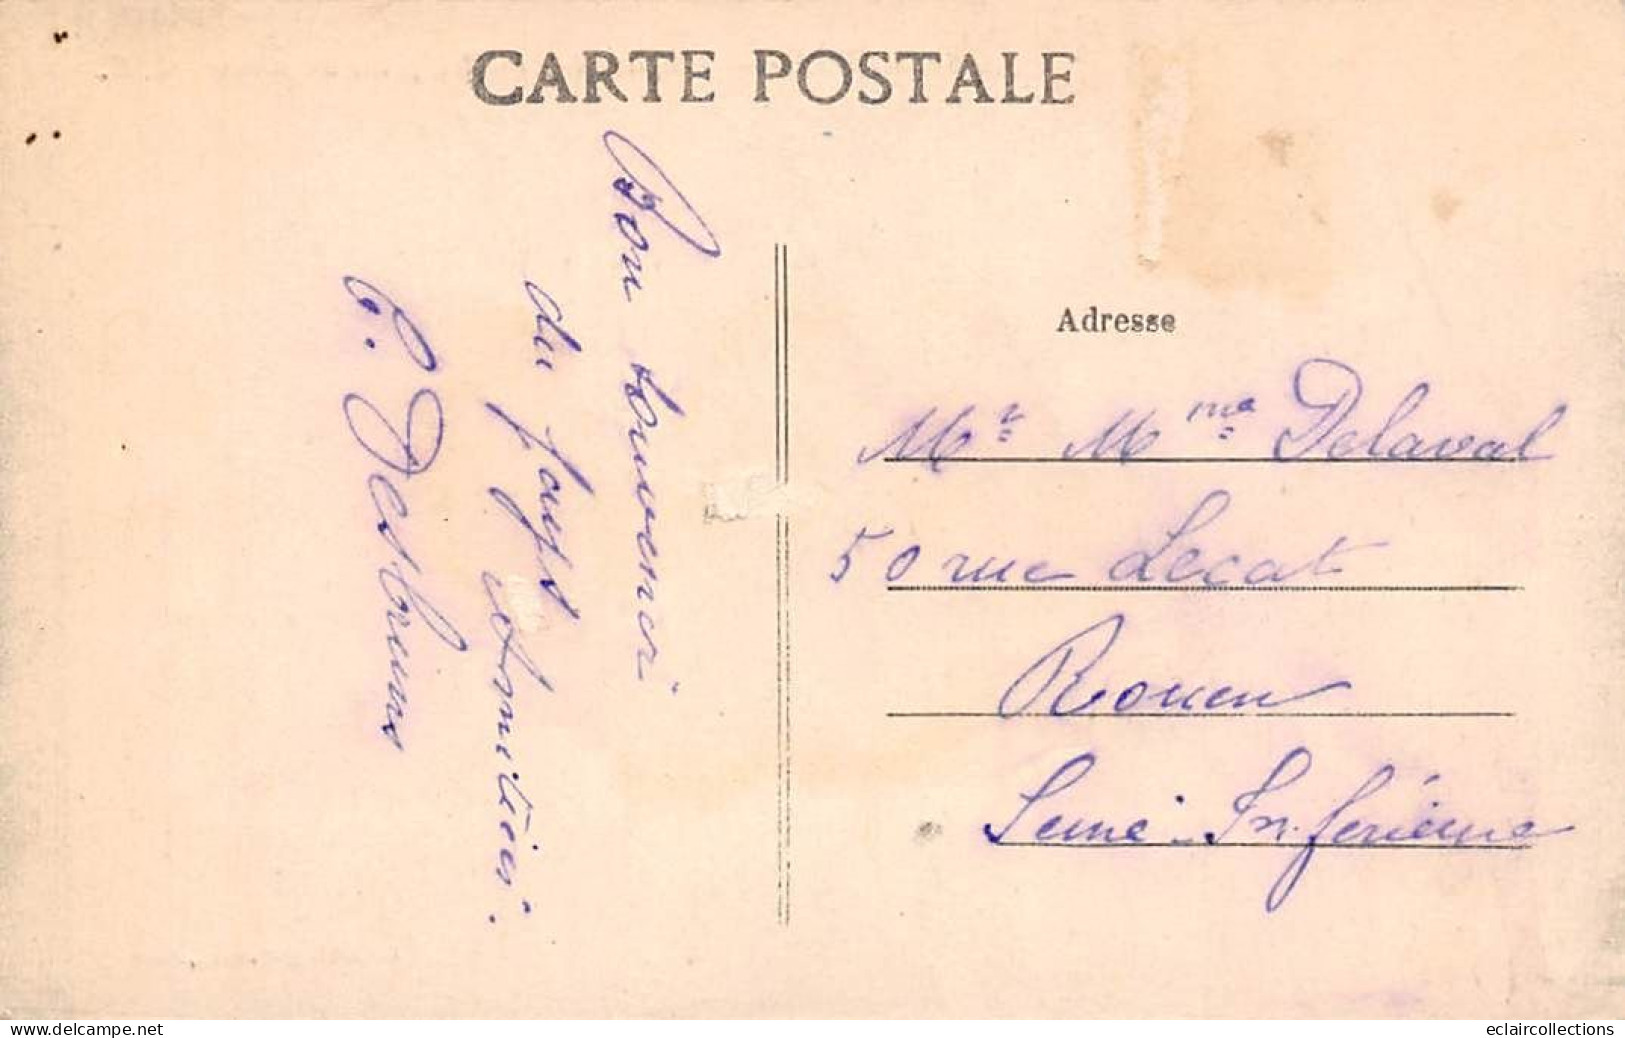 CARTE POSTALE
Bon souvenir
du pays
Amitiés.
C. Desbruns
Adresse
Mr Mme Delaval
50 rue Lecat
Rouen
Seine-Inférieure
www.delcampe.net
eclaircollections